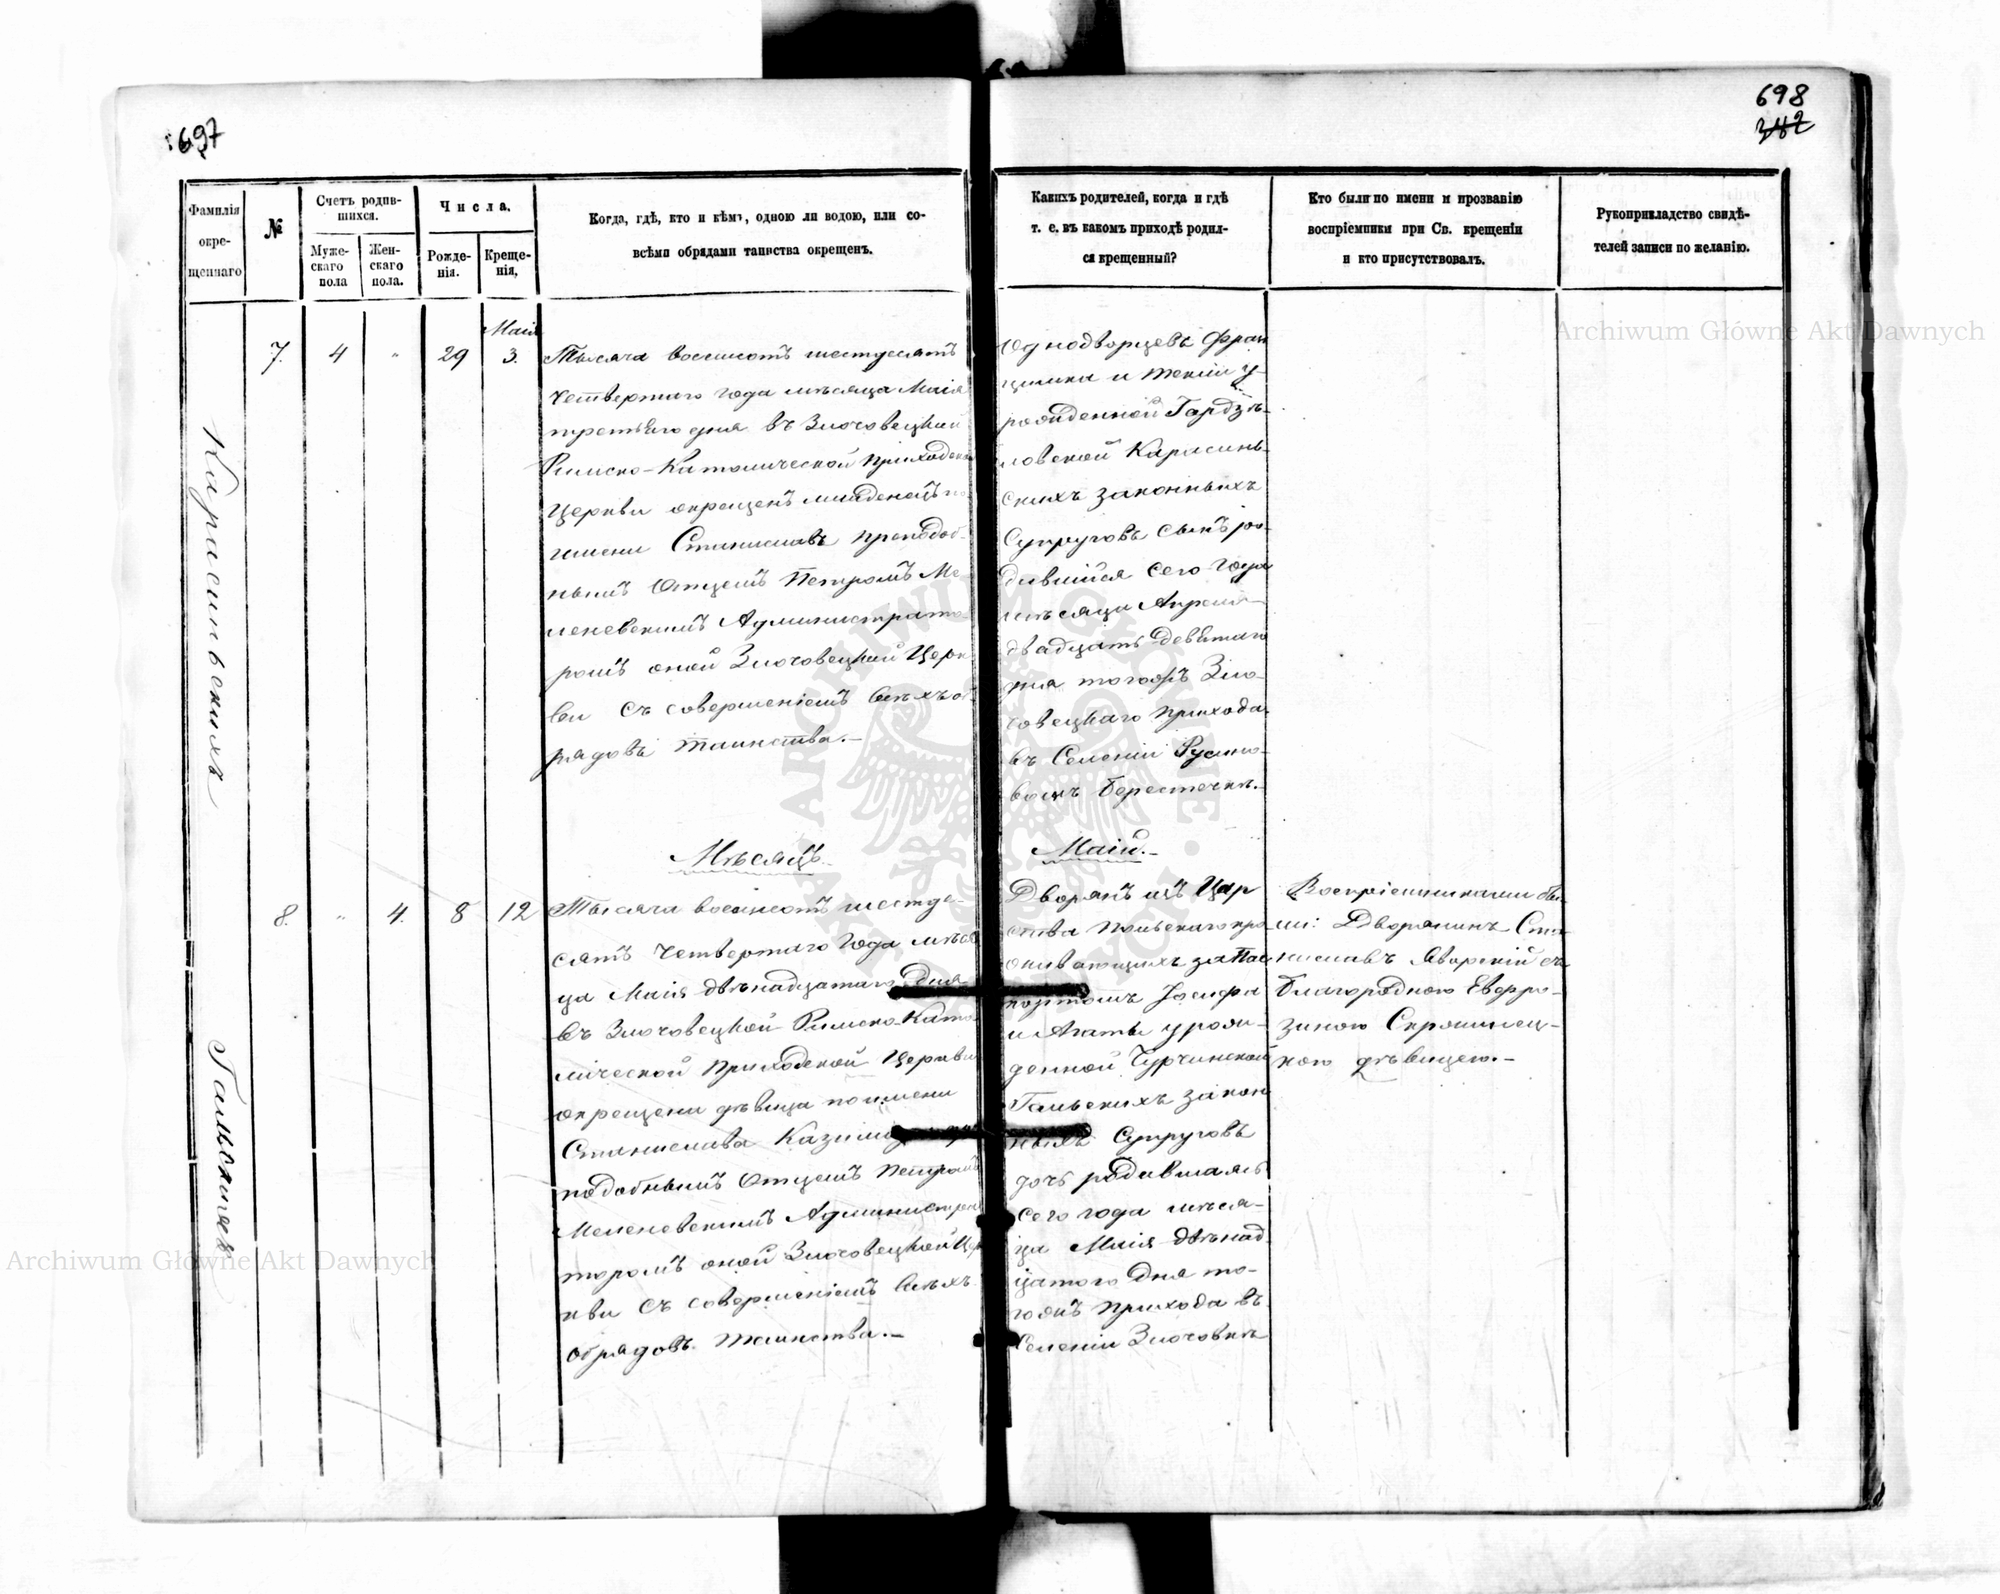 697
698
342
Фамилія окре-щеннаго
№
Счетъ родив-шихся.
Муже-скаго пола
Жен-скаго пола.
Числа.
Рожде-нія.
Креще-нія,
Когда, гдѣ, кто и кѣмъ, одною ли водою, или со-
всѣми обрядами таинства окрещенъ.
Какихъ родителей, когда и гдѣ
т. е. въ какомъ приходѣ родил-
ся крещенный?
Кто были по имени и прозванію
воспріемники при Св. крещеніи
и кто присутствовалъ.
Рукоприкладство свидѣ-
телей записи по желанію.
Карасинскихъ
7.
4
"
29
Маія
3.
Тысяча восемсотъ шестдесятъ
четвертаго года мѣсяца Маія
третьяго дня въ Злочовецкой
Римско-Католической Приходской
Церкви окрещенъ младенецъ по
имени Станиславъ преподоб-
нымъ Отцемъ Петромъ Ме-
леневскимъ Администрато-
ромъ оной Злочовецкой Церк
ви съ совершеніемъ всѣхъ об-
рядовъ таинства.-
Однодворцевъ Фран
цишка и Текли у-
рожденной Гардзѣ-
ловской Карасинь-
скихъ законныхъ
Супруговъ сынъ ро-
дившійся сего года
мѣсяца Апреля
двадцать девятаго
дня тогожъ Зло-
човецкаго прихода
въ Селеніи Русино-
вомъ Берестечкѣ.-
Мѣсяцъ
Маій.-
Гальскихъ
8.
"
4.
8
12
Тысяча восемсотъ шестде-
сятъ четвертаго года мѣся
ца Маія двѣнадцатаго Дня
въ Злочовецкой Римско-Като-
лической Приходской Церкви
окрещена дѣвица по имени
Станислава Казимира пре
подобнымъ Отцемъ Петромъ
Меленевскимъ Администра
торомъ оной Злочовецкой Цер
кви съ совершеніемъ всѣхъ
обрядовъ таинства.-
Дворянъ изъ Цар
ства Польскаго про
живающихъ за Пас
портомъ Іосифа
и Агаты урож-
денной Чурчинской
Гальскихъ закон
ныхъ Супруговъ
дочь родившаясь
сего года мѣся-
ца Маія двѣнад
цатого Дня то-
гожъ прихода въ
Селеніи Злочовкѣ
Воспріемниками бы-
ли: Дворянинъ Ста-
ниславъ Яворскій съ
благородною Евфро-
зиною Скржинец-
кою дѣвицею.-
Archiwum Główne Akt Dawnych
Archiwum Główne Akt Dawnych
ARCHIWUM GŁÓWNE AKT DAWNYCH